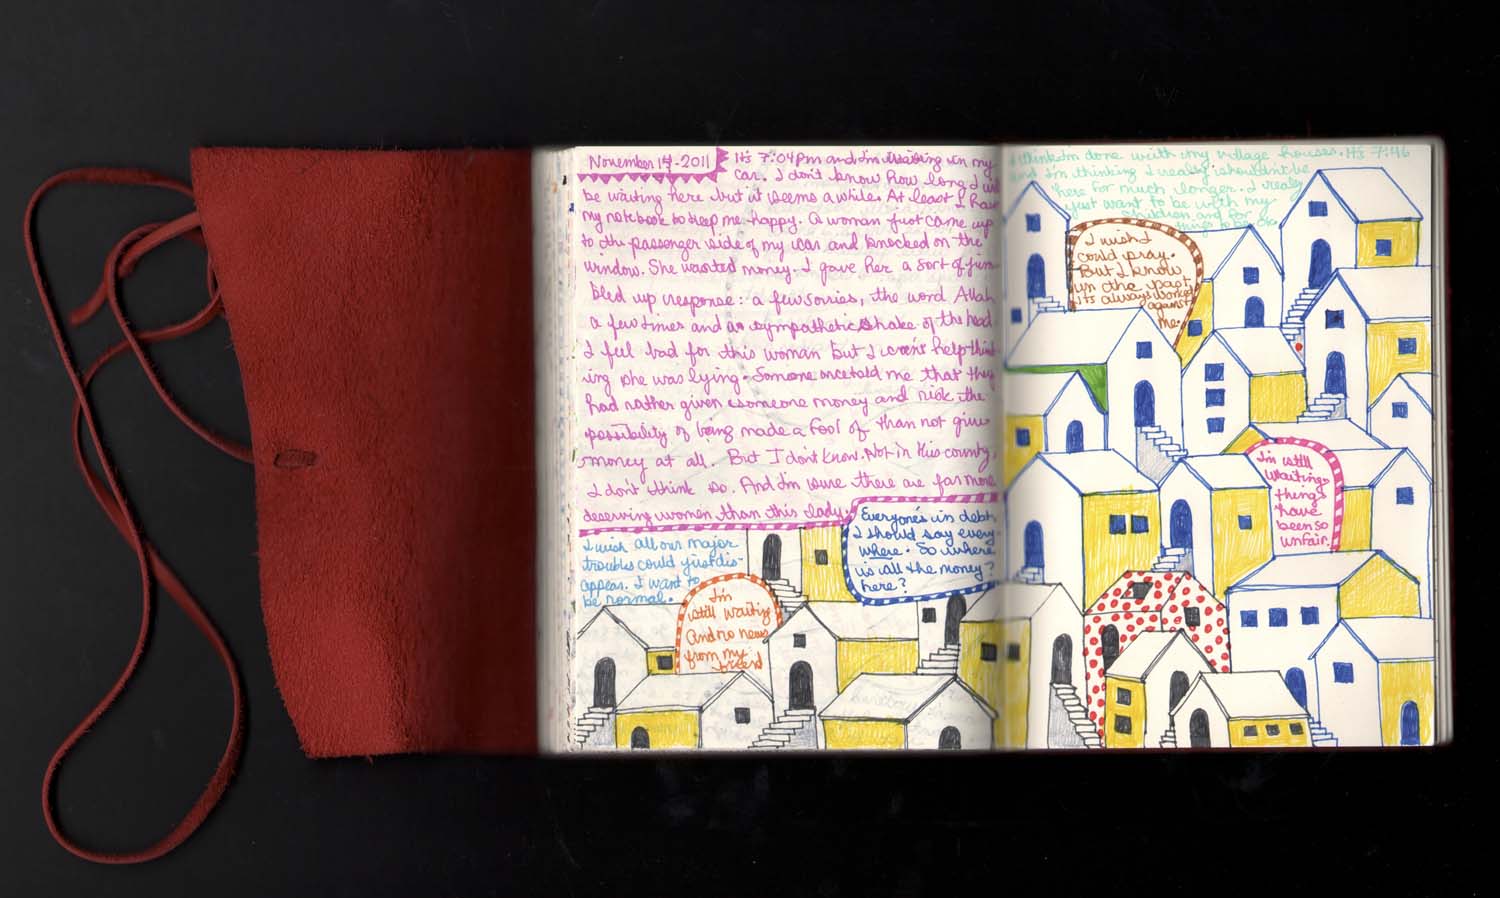 November 14-2011
It's 7:04pm and I'm waiting in my
car. I don't know how long I will
be waiting here but it seems a while. At least I have
my notebook to keep me happy. A woman just came up
to the passenger side of my car and knocked on the
window. She wanted money. I gave her a sort of jum
bled up response: a few sorries, the word Allah
a few times and a sympathetic shake of the head.
I feel bad for this woman but I can't help think
ing she was lying. Someone once told me that they
had rather given someone money and risk the
possibility of being made a fool of than not give
money at all. But I don't know. Not in this country,
I don't think so. And I'm sure there are far more
deserving women than this lady.
I wish all our major
troubles could just dis-
appear. I want to
be normal.
I'm
still waiting
and no news
from my
friend
Everyone's in debt,
I should say every-
where. So where
is all the money?
here?
I think I'm done with my village houses. It's 7:46
and I'm thinking I really shouldn't be
here for much longer. I really
just want to be with my
children and for
things to be ok.
I wish I
could pray.
But I know
in the past
its always worked
against
me.
I'm still
waiting.
things
have
been so
unfair.